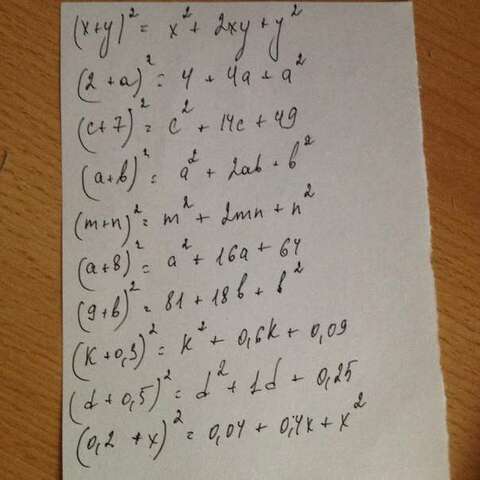 (x+y)² = x² + 2xy + y²
(2+a)² = 4 + 4a + a²
(c+7)² = c² + 14c + 49
(a+b)² = a² + 2ab + b²
(m+n)² = m² + 2mn + n²
(a+8)² = a² + 16a + 64
(9+b)² = 81 + 18b + b²
(k+0,3)² = k² + 0,6k + 0,09
(d+0,5)² = d² + 1d + 0,25
(0,2+x)² = 0,04 + 0,4x + x²